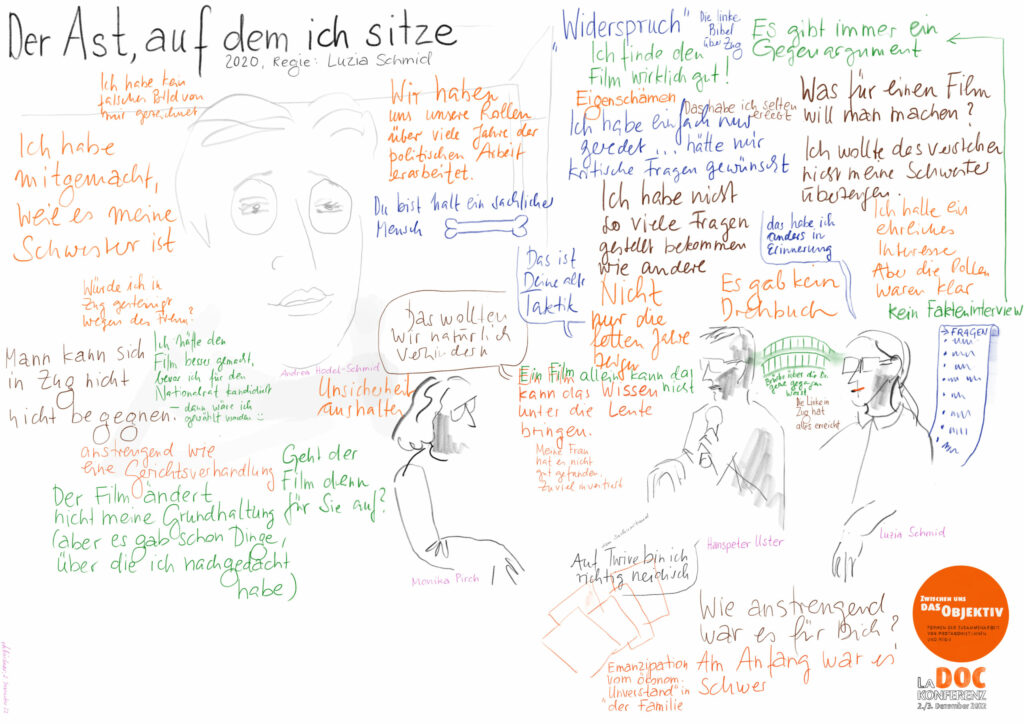 Der Ast, auf dem ich sitze
2020, Regie: Luzia Schmid
Ich habe kein
falsches Bild von
mir gezeichnet
Ich habe
mitgemacht,
weil es meine
Schwester ist
Wir haben
uns unsere Rollen
über viele Jahre der
politischen Arbeit
erarbeitet.
Du bist halt ein sachlicher
Mensch
Würde ich in
Zug gesteinigt
wegen des Films?
Mann kann sich
in Zug nicht
nicht begegnen.
Ich hätte den
Film besser gemacht,
bevor ich für den
Nationalrat kandidiert
dann wäre ich
gewählt worden :)
Andrea Hodel-Schmid
Unsicherheit
aushalten
anstrengend wie
eine Gerichtsverhandlung
Geht der
Film denn
für Sie auf?
Der Film ändert
nicht meine Grundhaltung
(aber es gab schon Dinge,
über die ich nachgedacht
habe)
Das wollten
wir natürlich
verhindern
Monika Pirch
"Widerspruch"
Die linke
Bibel
über Zug
Ich finde den
Film wirklich gut!
Es gibt immer ein
Gegenargument
Eigenschämen
Das habe ich selten
erlebt
Ich habe einfach nur
geredet... hätte mir
kritische Fragen gewünscht
Was für einen Film
will man machen?
Ich wollte das verstehen
nicht meine Schwester
überzeugen.
Ich habe nicht
so viele Fragen
gestellt bekommen
wie andere
Das ist
Deine alte
Taktik
das habe ich
anders in
Erinnerung
Ich hatte ein
ehrliches
Interesse
Aber die Rollen
waren klar
Nicht
nur die
fetten Jahre
zeigen
Es gab kein
Drehbuch
kein Fakteninterview
→ FRAGEN
Ein Film allein kann das
nicht
kann das Wissen
unter die Lente
bringen.
Meine Frau
hat es nicht
gut gefunden.
Zu viel investiert
Brücke über die
Die Linke in
Zug hat
alles erreicht
Hanspeter Uster
Luzia Schmid
Auf Twive bin ich
richtig neidisch
Wie anstrengend
war es für Dich?
Am Anfang war es
schwer
Emanzipation
vom ökonom.
Unverstand" in
"der Familie
Zwischen uns
DAS OBJEKTIV
FORMEN DER ZUSAMMENARBEIT
VON PROTAGONIST:INNEN
UND REGIE
LADOC
KONFERENZ
2./3. Dezember 2022